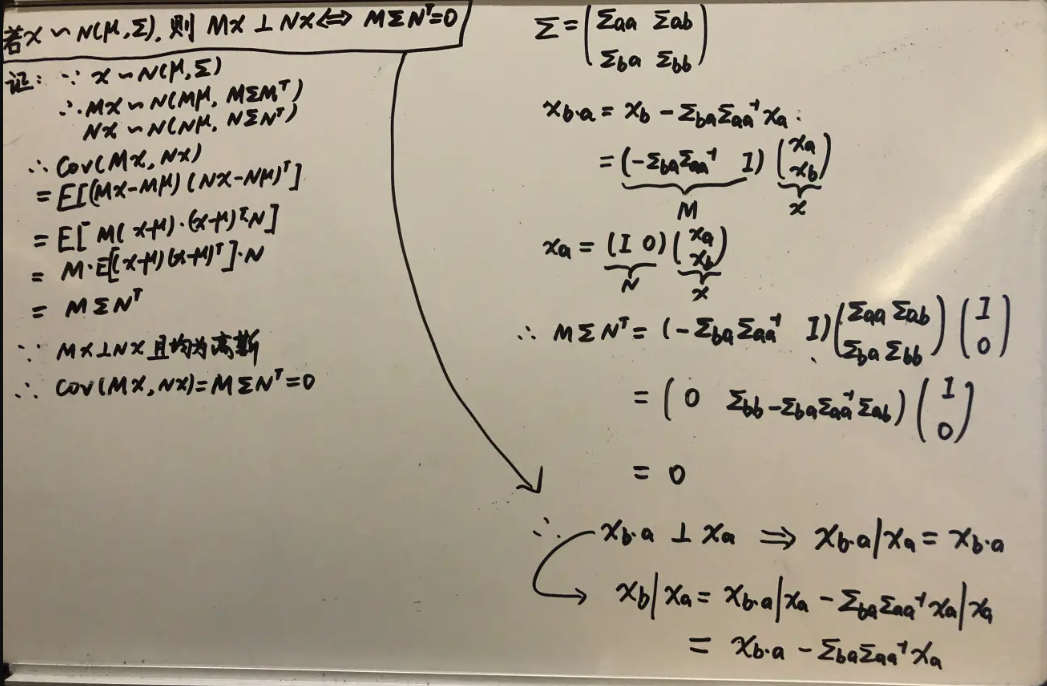 若x ~ N(μ,Σ),则 Mx ⊥ Nx ⟺ MΣNᵀ=0
证: ∵ x ~ N(μ,Σ)
∴ Mx ~ N(Mμ, MΣMᵀ)
Nx ~ N(Nμ, NΣNᵀ)
∴ Cov(Mx, Nx)
= E[(Mx-Mμ)(Nx-Nμ)ᵀ]
= E[M(x-μ)·(x-μ)ᵀ·N]
= M·E[(x-μ)(x-μ)ᵀ]·N
= MΣNᵀ
∵ Mx⊥Nx 且均为高斯
∴ Cov(Mx,Nx)=MΣNᵀ=0
Σ = (Σaa Σab
Σba Σbb)
xb·a = xb - ΣbaΣaa⁻¹xa:
= (-ΣbaΣaa⁻¹ I) (xa
xb)
M x
xa = (I 0) (xa
xb)
N x
∴ MΣNᵀ = (-ΣbaΣaa⁻¹ I) (Σaa Σab
Σba Σbb) (I
0)
= (0 Σbb-ΣbaΣaa⁻¹Σab) (I
0)
= 0
∴ xb·a ⊥ xa ⟹ xb·a|xa = xb·a
xb|xa = xb·a|xa - ΣbaΣaa⁻¹xa|xa
= xb·a - ΣbaΣaa⁻¹xa